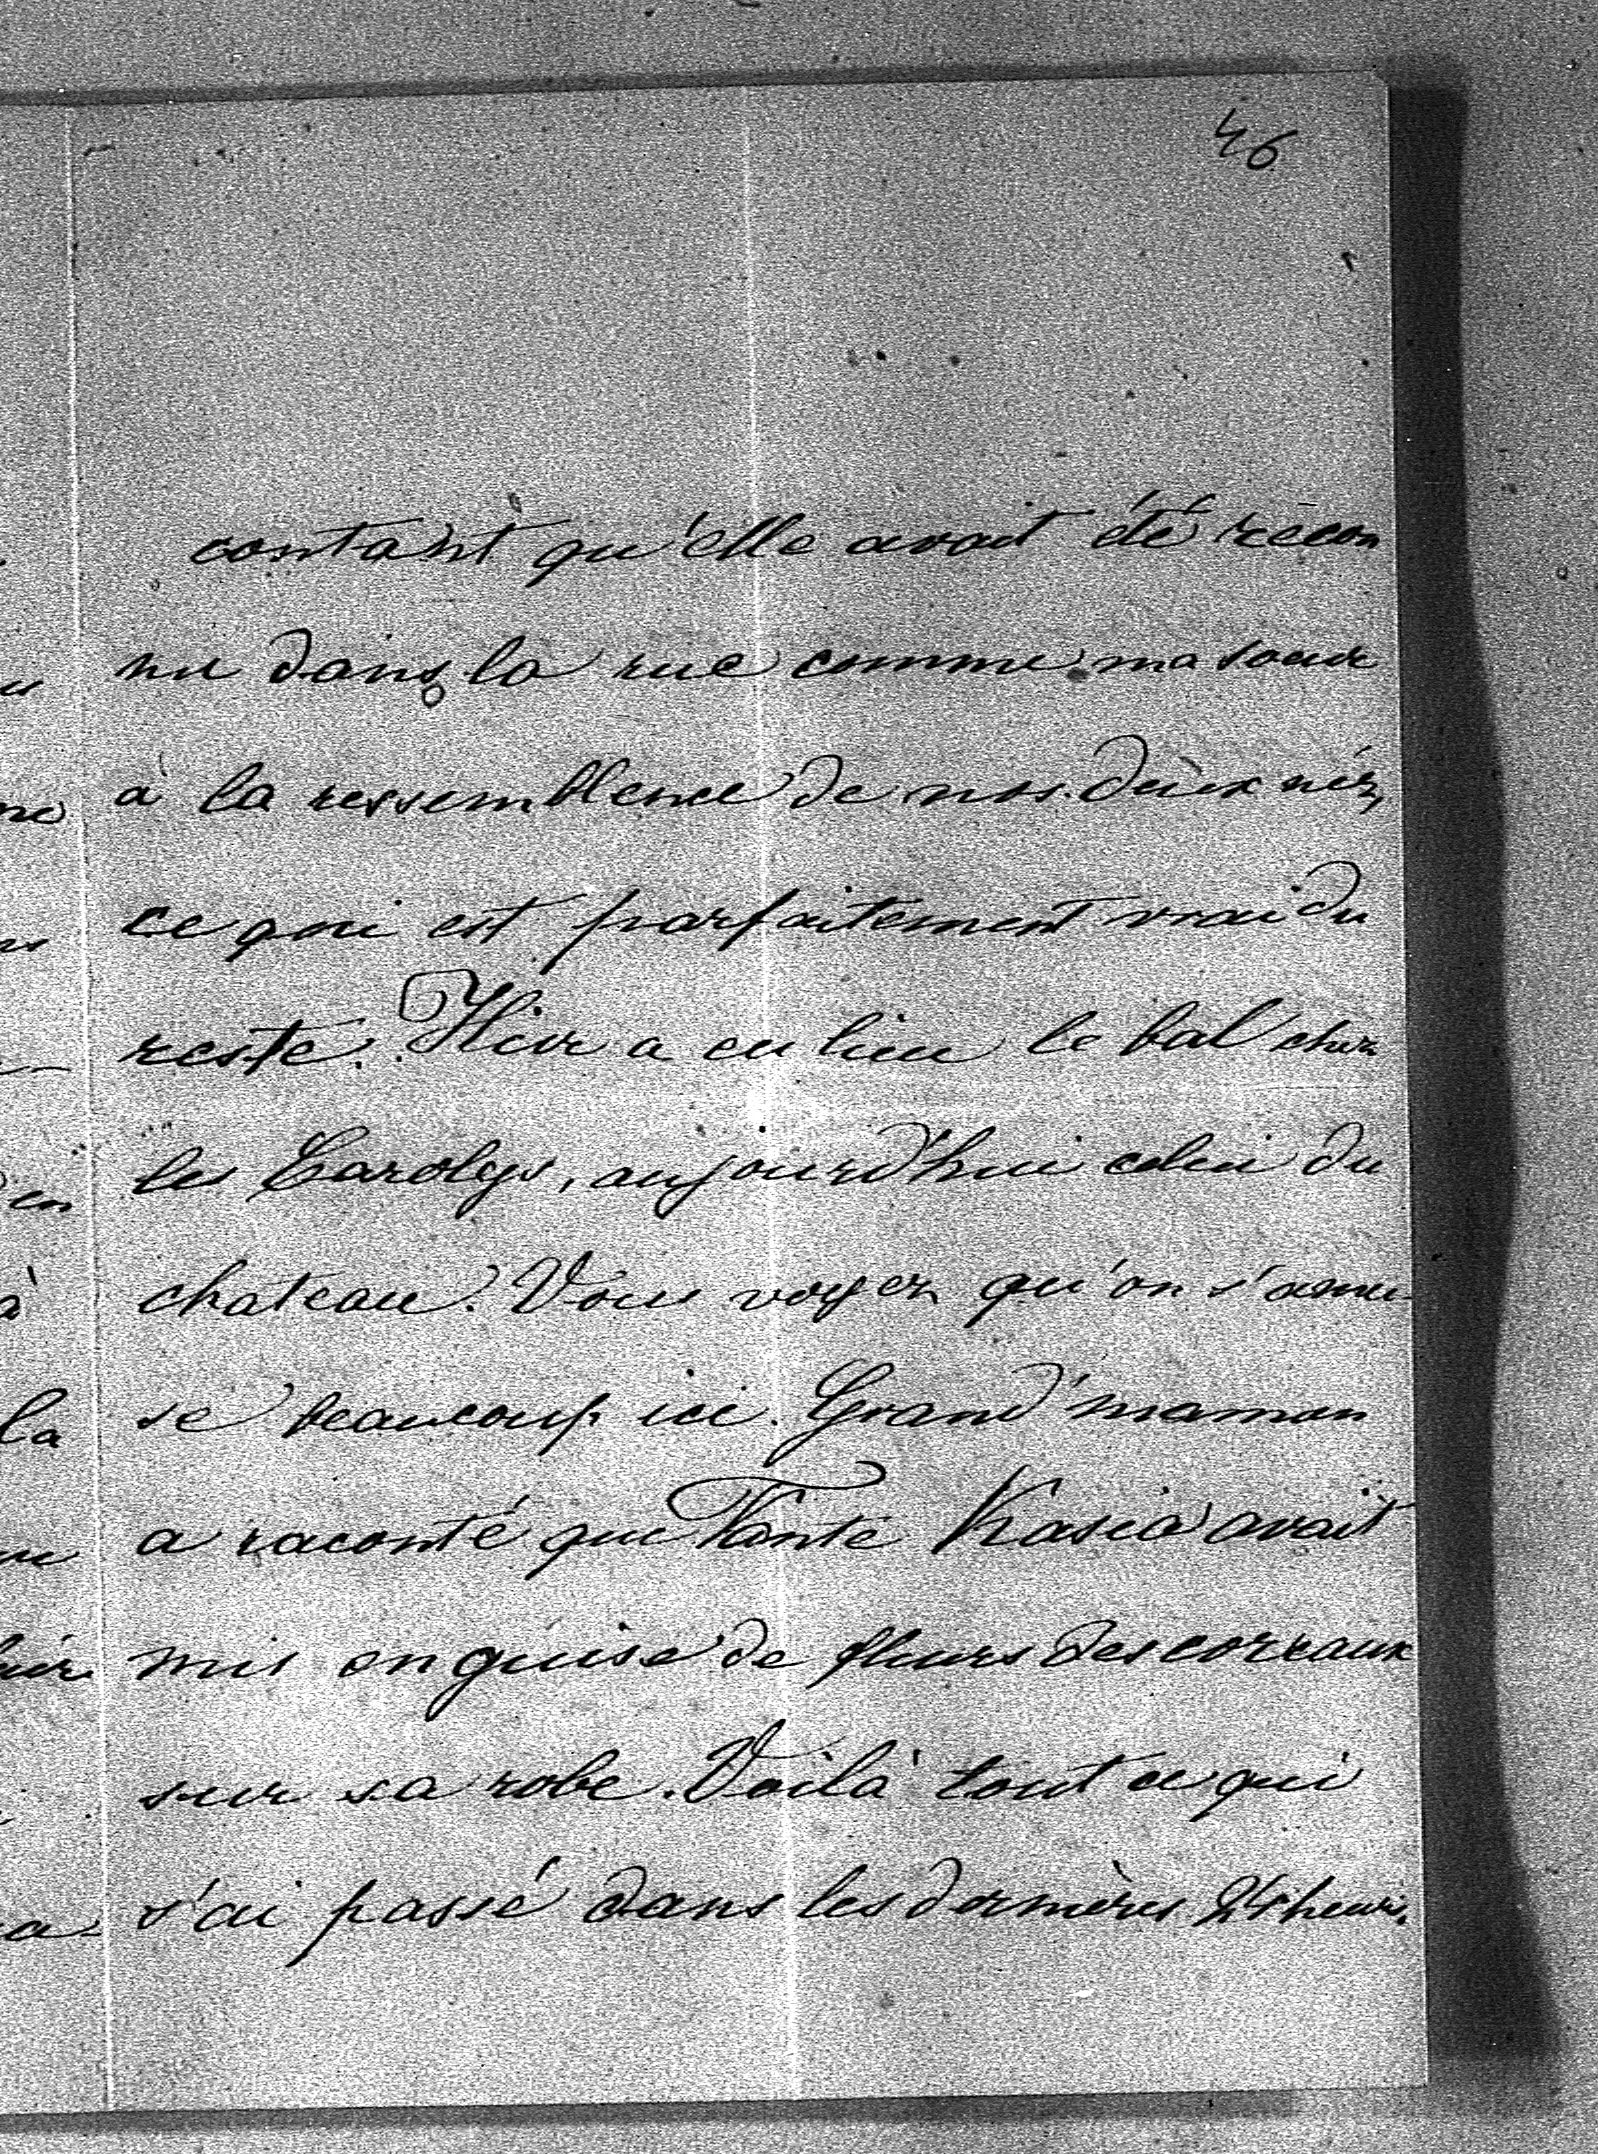 46
contant qu'elle avait été recon
nu dans la rue comme ma soeur
à la ressemblence de nos deux néz,
ce qui est parfaitement vrai du
reste. Hier a eu lieu le bal chez
les Carolys, aujourd'hui celui du
chateau. Vous voyez qu'on s'amu-
se beaucoup ici. Grand'maman
a raconté que Tante Kasia avait
mis en guise de fleurs des correaux
sur sa robe. Voilà tout ce qui
s'ai passé dans les dernières 24 heur.